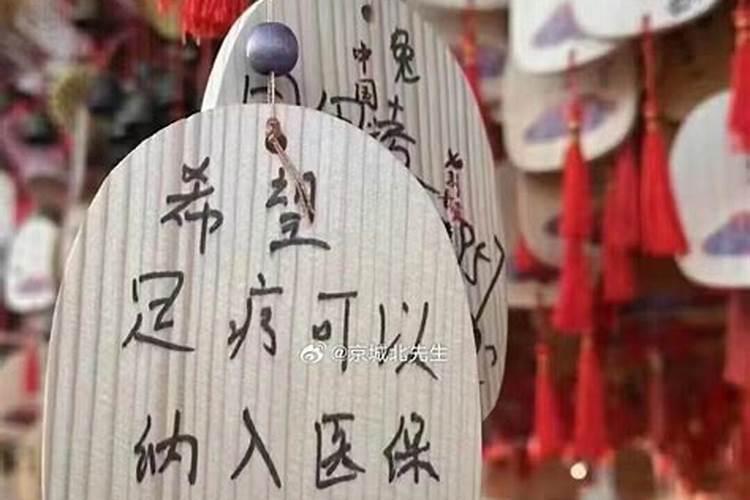 希望
足疗可以
纳入医保
@京城北先生
兔
中国